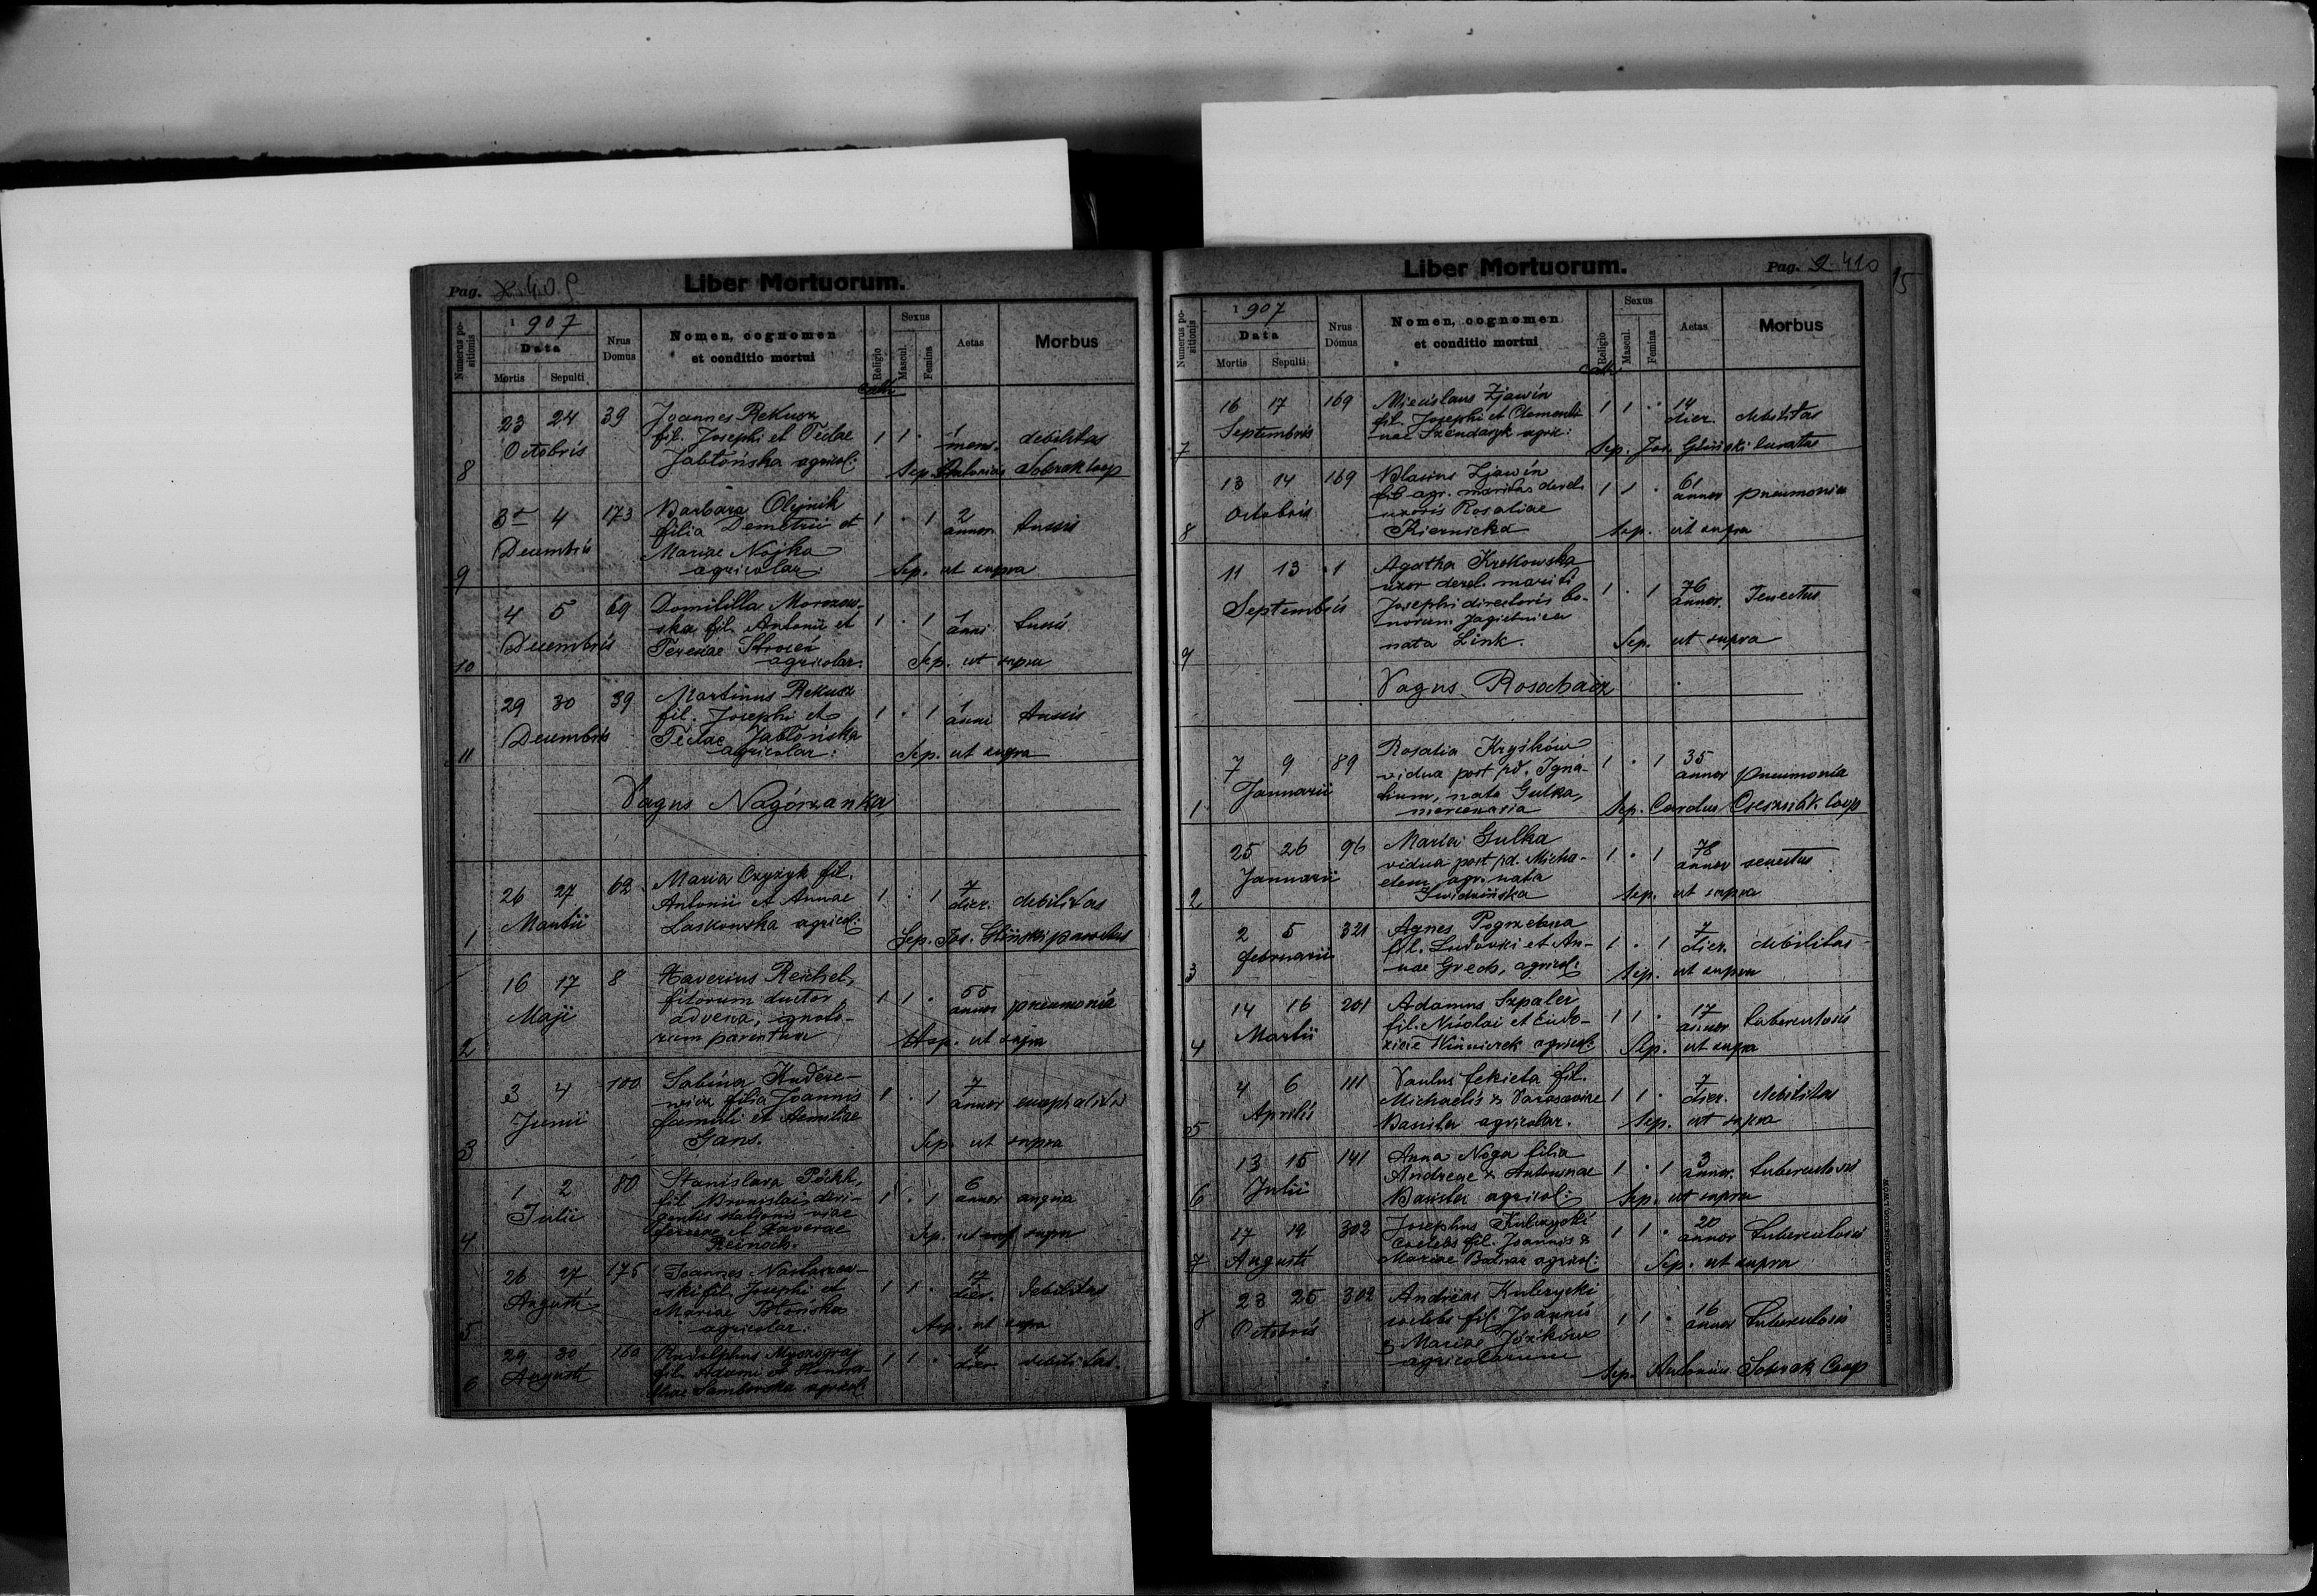 Pag. 409
Liber Mortuorum.
Numerus positionis
1907
Data
Mortis Sepulti
Nrus Domus
Nomen, cognomen
et conditio mortui
Religio
Sexus
Mascul. Femina
Aetas
Morbus
cath
8 23 24 39 Joannes Rekusz
Octobris fil. Josephi et Teclae 1 1 · 1 mens. debilitas
Jabłońska agricol: Sep. Antonius Sobrak Coop
9 3 4 173 Barbara Olejnik
Decembris filia Demetrii et 1 · 1 2 annor. tussis
Mariae Nojka
agricolar. Sep. ut supra
10 4 5 69 Domitilla Morozow-
Decembris ska fil. Antonii et 1 · 1 1 anni tussis
agricolar. Sep. ut supra
11 29 30 39 Martinus Rekusz
Decembris fil. Josephi et 1 · 1 1 anni tussis
Teclae Jabłońska
agricolar: Sep. ut supra
Pagus Nagórzanka
1 26 27 62 Maria Czyżyk fil.
Martii Antonii et Annae 1 · 1 7 dier. debilitas
Laskowska agricol: Sep. Jos. Gliński
2 16 17 8 Xaverius Reichel,
Maji filorum ductor 1 1 · 55 annor pneumonia
advena, ignoto-
rum parentum Sep. ut supra
3 3 4 100 Sabina Kudere-
Junii wicz filia Joannis 1 · 1 7 annor encephalitis
famuli et Aemiliae
Gans. Sep. ut supra
4 1 2 80 Stanislava Pöckh,
Julii fil. Bronislai diri- 1 · 1 6 annor angina
gentis stationis viae
ferreae et Xaverae
Reinoch. Sep. ut supra
5 26 27 175 Joannes
Augusti ski fil. Josephi et 1 1 · 17 dier. debilitas
Mariae Błońska
agricolar. Sep. ut supra
6 29 30 150 Rudolphus
Augusti fil. Adami et Honora- 1 1 · 4 dier debilitas.
Samborska agricol.
Liber Mortuorum.
Pag. 410
15
Numerus positionis
1907
Data
Mortis Sepulti
Nrus Domus
Nomen, cognomen
et conditio mortui
Religio
Sexus
Mascul. Femina
Aetas
Morbus
cath
7 16 17 169 Miecislaus Zjawin
Septembris fil. Josephi et Clementi- 1 1 · 14 dier. debilitas
nae Szendaryk agric: Sep. Jos. Gliński Curatus
8 13 14 169 Blasius Zjawin
Octobris fil. agr. maritus derel. 1 1 · 61 annor pneumonia
uxoris Rosaliae
Kiernicka Sep. ut supra
9 11 13 1 Agatha Krokowska
Septembris uxor derel. mariti 1 · 1 76 annor. Senectus
Josephi directoris bo-
norum Jagielnica
nata Link. Sep. ut supra
Pagus Rosochacz
1 7 9 89 Rosalia Kryśków
Januarii vidua post pd. Igna- 1 · 1 35 annor pneumonia
tium, nata Gulka,
mercenaria Sep. Carolus Coop
2 25 26 96 Maria Gulka
Januarii vidua post pd. Micha- 1 · 1 78 annor senectus
elem agr. nata
Sep. ut supra
3 2 5 321 Agnes Pogrzebna
februarii fil. Ludovici et An- 1 · 1 7 dier. debilitas
nae Grech, agricol: Sep. ut supra
4 14 16 201 Adamus Szpaler
Martii fil. Nicolai et Eudo- 1 1 · 17 annor tuberculosis
xiae agricol: Sep. ut supra
5 4 6 111 Paulus fekieta fil.
Aprilis Michaelis & Parascevine 1 1 · 7 dier. debilitas
Basista agricolar. Sep. ut supra
6 13 15 141 Anna Noga filia
Julii Andreae & Antoninae 1 · 1 3 annor. tuberculosis
Basista agricol: Sep. ut supra
7 17 19 302 Josephus Kubrycki
Augusti coelebs fil. Joannis & 1 1 · 20 annor tuberculosis
Mariae agricol: Sep. ut supra
8 23 25 302 Andreas Kubrycki
Octobris coelebs fil. Joannis 1 1 · 16 annor tuberculosis
& Mariae Józików
agricolarum
Sep. Antonius Sobrak Coop